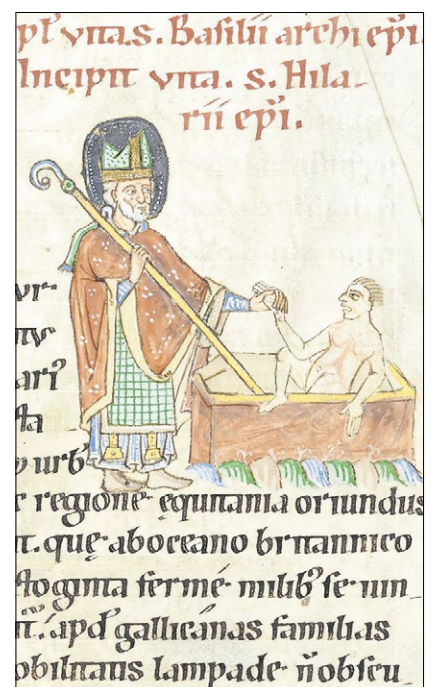 pl̄ vita.s. Basilii archiep̄i.
Incipit vita. s. Hila-
rii ep̄i.
ur-
tu
ari᷒
ta
urb᷒
e regione equitania oriundus
it. que ab oceano britannico
togınta fermé milib᷒ se uin_
apd̄ gallicanas familias
obilitatis lampade n̄ obscu_